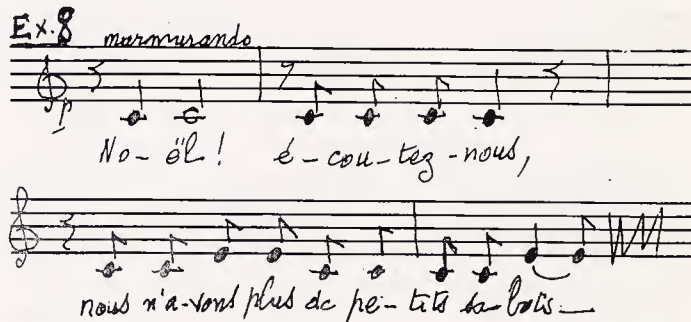 Ex. 8 marmurando
p
No-ël! é-cou-tez-nous,
nous n'a-vons plus de pe-tits sa-bots